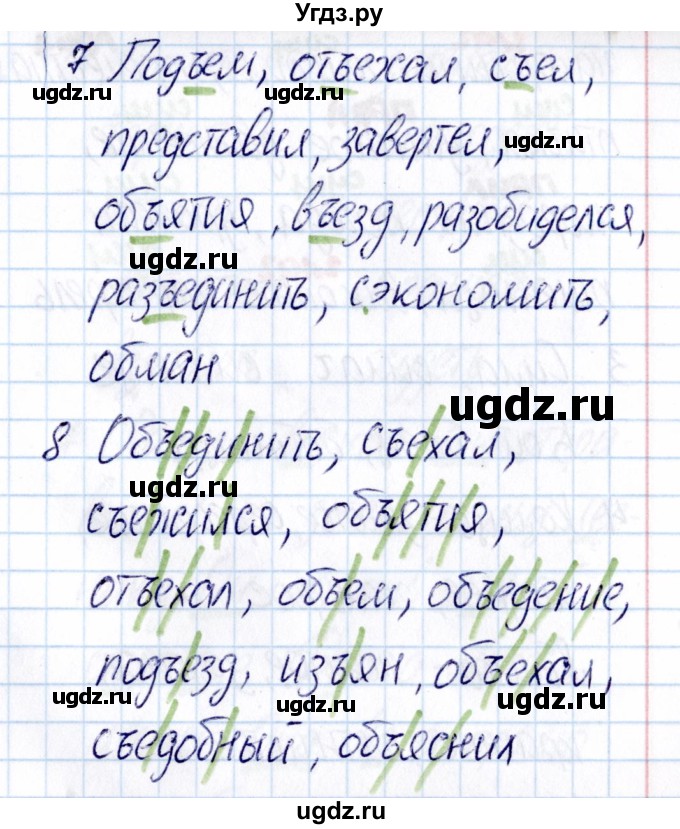 Угдз.ру
7 Подъем, отъехал, съел,
ugdz.ru ugdz.ru ugdz.ru
представил, завертел,
объятия, въезд, разобиделся,
ugdz.ru ugdz.ru
разъединить, сэкономить,
обман
ugdz.ru
8 Объединить, съехал,
ugdz.ru
съежился, объятия,
ugdz.ru
отъехал, объем, объедение,
подъезд, изъян, объехал,
ugdz.ru ugdz.ru ugdz.ru
съедобный, объяснил
ugdz.ru